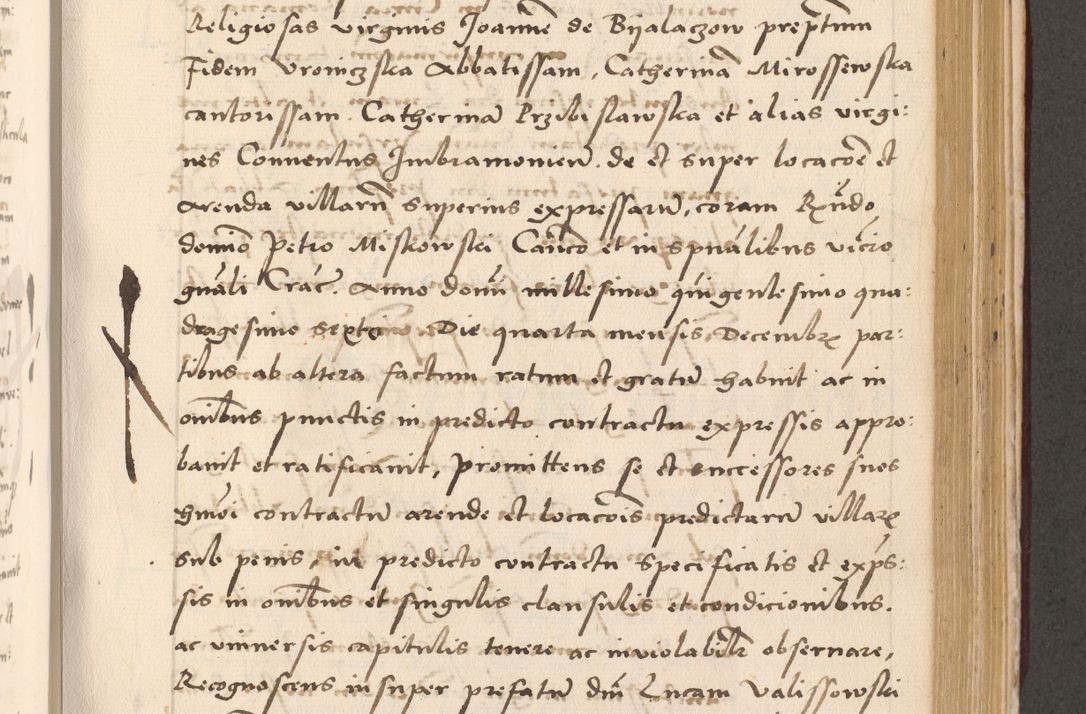 Religiosas virginis Joannē de Bijalaczow prep̄tum
Fidem Vroniczska Abbatissam, Catherinā Mirossewska
cantorissam. Catherinā Przibislawska et alias virgi:
nes Conuentus Imbramonien̄. de et super locacōe et
Arenda villarū superius expressarū, coram Rn̄do
domio Petro Miskowski Can̄co et in spūalibus vicrō
gn̄ali Crac̄. Anno domī millesimo quingentesimo qua:
dragesimo sexto Die quarta mensis Decembrꝭ par:
tibus ab altera factum ratum et gratū habuit ac in
om̄ibus punctis in predicto contractu expressis appro:
bauit et ratificauit, Promittens se et successores suos
hmōi contractū arende et locacōis predictarū villarꝭ
sub penis, in predicto contractu specificatis et exp̄s:
sis in om̄ibus et singulis clausulis et condicionibus.
ac vniuersis capitulis tenere ac inviolabilr̄ obseruare,
Recognoscens insuper prefatū dn̄m Lucam Valissowski